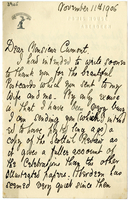 November 11th 1906
Dear Monsieur Cumont,
I had intended to write sooner
to thank you for the beautiful
Postcards which you sent to my
Wife and me. For only seeing
that I have been very busy
I am sending you (which I intend-
ed to have done long ago) a
copy of the Scottish Review as
it gives a fuller account of
the Celebrations than the other
illustrated papers. Aberdeen has
seemed very quiet since then